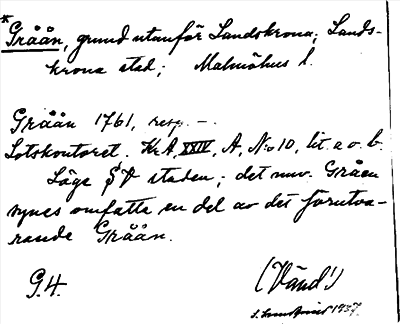 *Gråån, grund utanför Landskrona; Lands-
krona stad; Malmöhus l.
Gråån 1761, resp. -.
Lotskontoret. KrA, XXIV, A, No 10, lit. a o. b.
Läge SV staden; det nuv. Gråen
synes omfatta en del av det förutva-
rande Gråån.
G.4. (Vänd!)
1937.